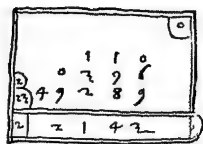 0
1 1 0
0 2 9 8
2
22 4 9 2 8 9
2 2 1 4 2